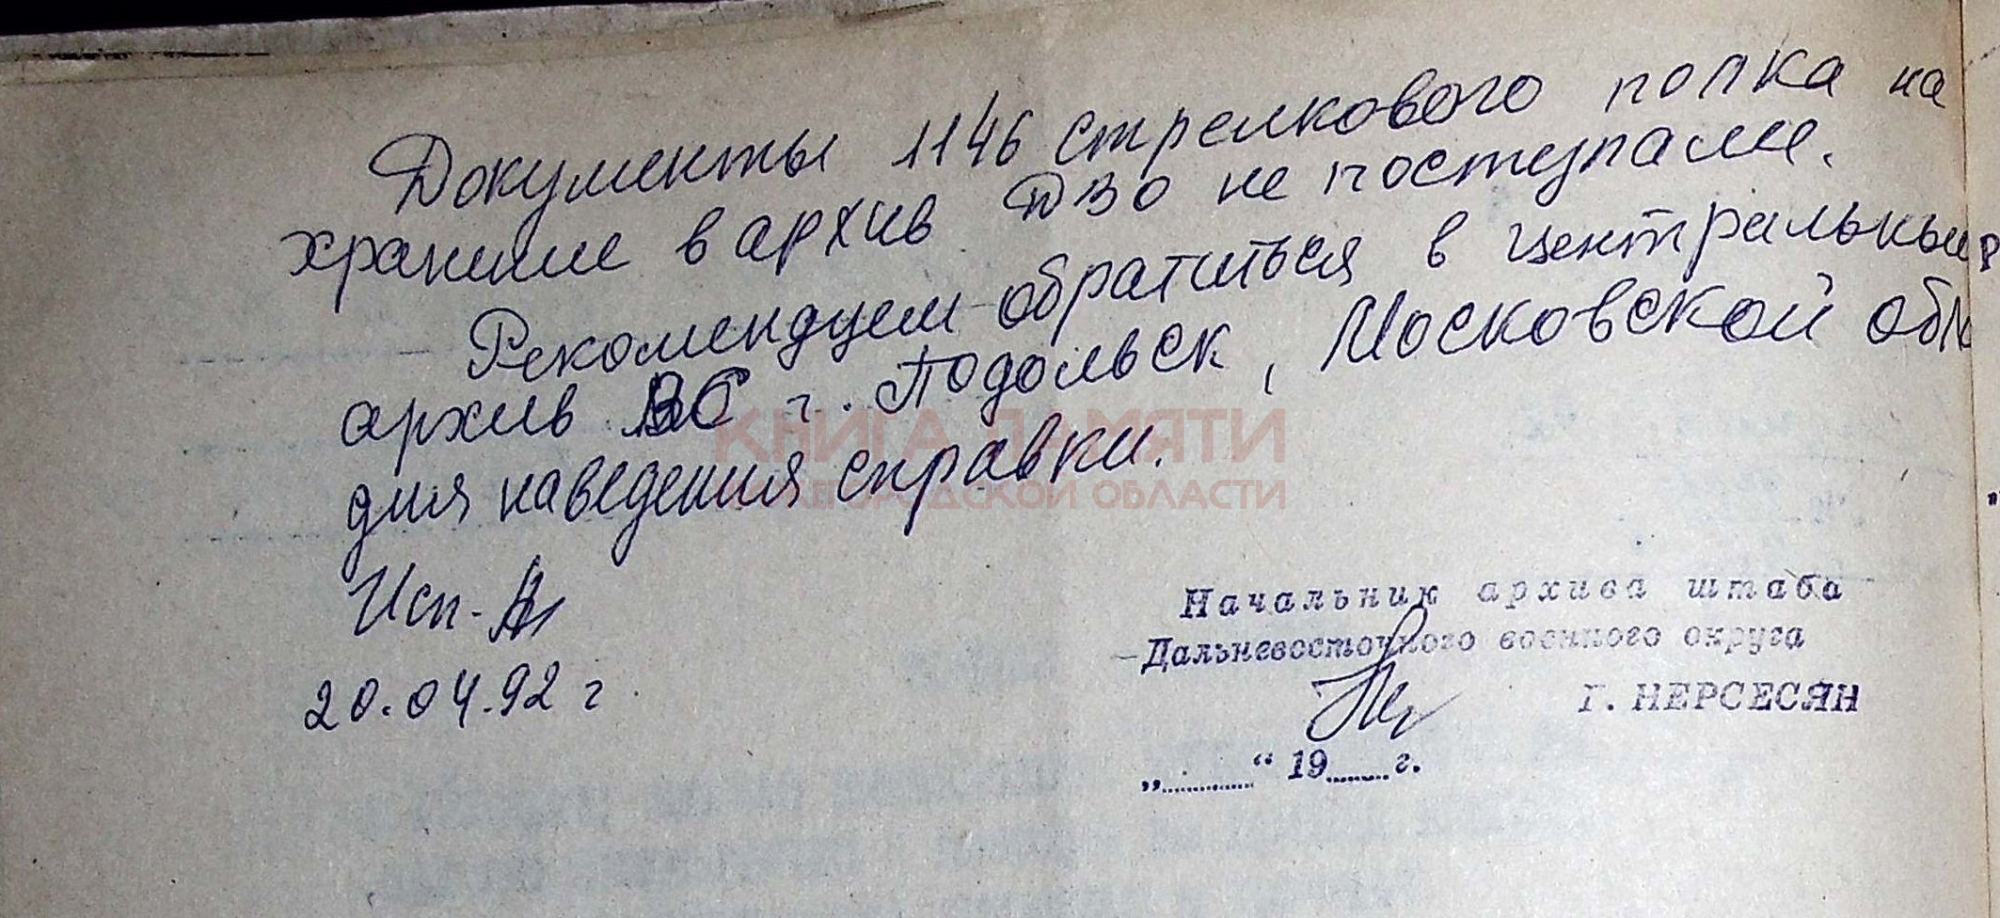 Документы 1146 стрелкового полка на
хранение в архив ДВО не поступали.
Рекомендуем обратиться в центральный
архив ВС г. Подольск, Московской обл
для наведения справки.
Исп.
20.04.92 г.
КНИГА ПАМЯТИ
ОБЛАСТИ
Начальник архива штаба
Дальневосточного военного округа
Г. НЕРСЕСЯН
„........“ 19......г.